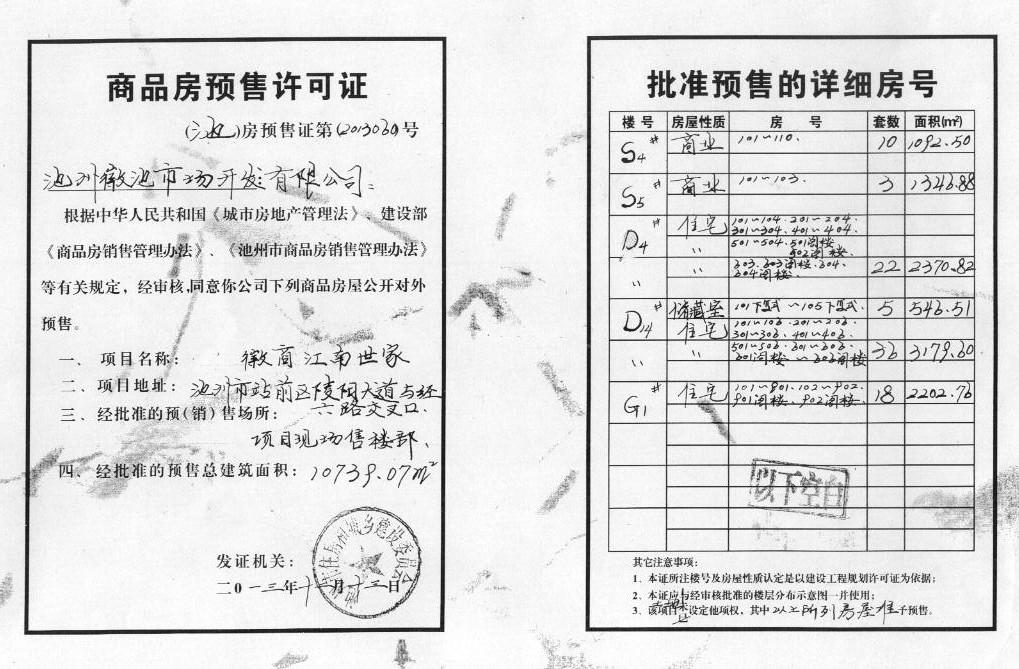 商品房预售许可证
(池)房预售证第(2013060)号
池州徽池市场开发有限公司:
根据中华人民共和国《城市房地产管理法》、建设部
《商品房销售管理办法》、《池州市商品房销售管理办法》
等有关规定,经审核,同意你公司下列商品房屋公开对外
预售。
一、项目名称: 徽商江南世家
二、项目地址: 池州市站前区陵阳大道与经
六路交叉口.
三、经批准的预(销)售场所:
项目现场售楼部、
四、经批准的预售总建筑面积: 10739.07m²
池州市住房和城乡建设委员会
发证机关:
二〇一三年十二月十三日
批准预售的详细房号
楼号 房屋性质 房号 套数 面积(m²)
S4# 商业 101~110. 10 1092.50
S5# 商业 101~103. 3 1346.88
D4# 住宅 101~104.201~204.
301~304.401~404.
〃 501~504.501阁楼.
502阁楼.
〃 〃 303.303阁楼.304. 22 2370.82
304阁楼.
D14# 储藏室 101下叠式~105下叠式. 5 546.51
住宅 101~106.201~206.
301~306.401~406.
〃 501~506.301~306. 36 3179.60
301阁楼~306阁楼
G1# 住宅 101~901.102~902. 18 2202.76
901阁楼.902阁楼.
以下空白
其它注意事项:
1、本证所注楼号及房屋性质认定是以建设工程规划许可证为依据;
2、本证应与经审核批准的楼层分布示意图一并使用;
3、该项目 设定他项权,其中 以上所列房屋准予预售。